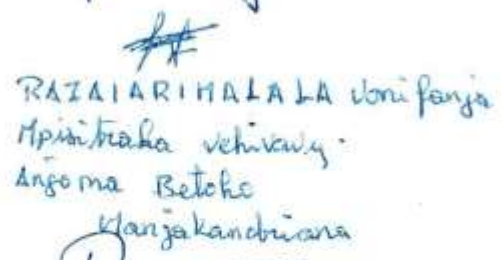 RAZAIARIMALALA Vonifanja
Mpisitraka vehivavy.
Anjoma Betoho
Manjakandriana